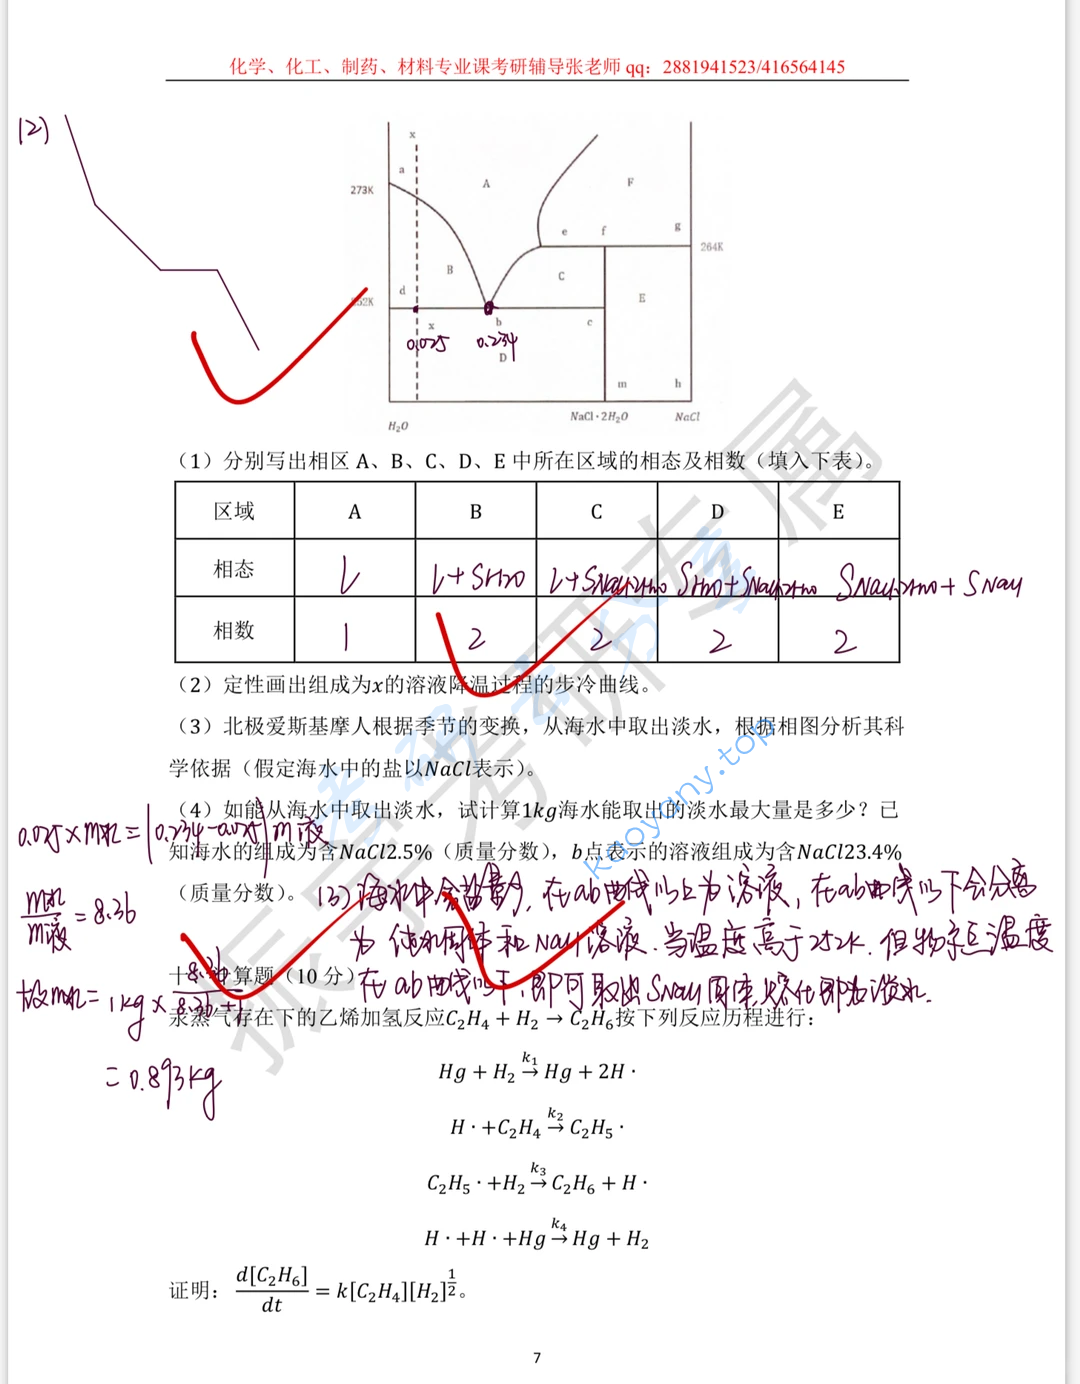 化学、化工、制药、材料专业课考研辅导张老师 qq：2881941523/416564145
(2)
x
a
A
F
273K
e
f
g
264K
B
C
d
E
252K
x
b
c
0.025
0.234
D
m
h
H₂O
NaCl·2H₂O
NaCl
（1）分别写出相区 A、B、C、D、E 中所在区域的相态及相数（填入下表）。
区域 A B C D E
相态 L L+SH2O L+SNaCl·2H2O SH2O+SNaCl·2H2O SNaCl·2H2O+SNaCl
相数 1 2 2 2 2
（2）定性画出组成为x的溶液降温过程的步冷曲线。
（3）北极爱斯基摩人根据季节的变换，从海水中取出淡水，根据相图分析其科
学依据（假定海水中的盐以NaCl表示）。
（4）如能从海水中取出淡水，试计算1kg海水能取出的淡水最大量是多少？已
0.025×m冰=(0.234-0.025)m液
知海水的组成为含NaCl2.5%（质量分数），b点表示的溶液组成为含NaCl23.4%
（质量分数）。
m冰/m液=8.36
(3) 海水中含盐量少，在ab曲线以上为溶液，在ab曲线以下会分离
为纯水固体和NaCl溶液．当温度高于252K．但物系点温度
在ab曲线以下，即可取出
故m冰=1kg×8.36/8.36+1
=0.893kg
计算题（10 分）
汞蒸气存在下的乙烯加氢反应C₂H₄ + H₂ → C₂H₆按下列反应历程进行：
Hg + H₂ →k₁ Hg + 2H ·
H · +C₂H₄ →k₂ C₂H₅ ·
C₂H₅ · +H₂ →k₃ C₂H₆ + H ·
H · +H · +Hg →k₄ Hg + H₂
证明：d[C₂H₆]/dt = k[C₂H₄][H₂]^(1/2)。
振宇考研专属
考研云分享
kaoyany.top
7